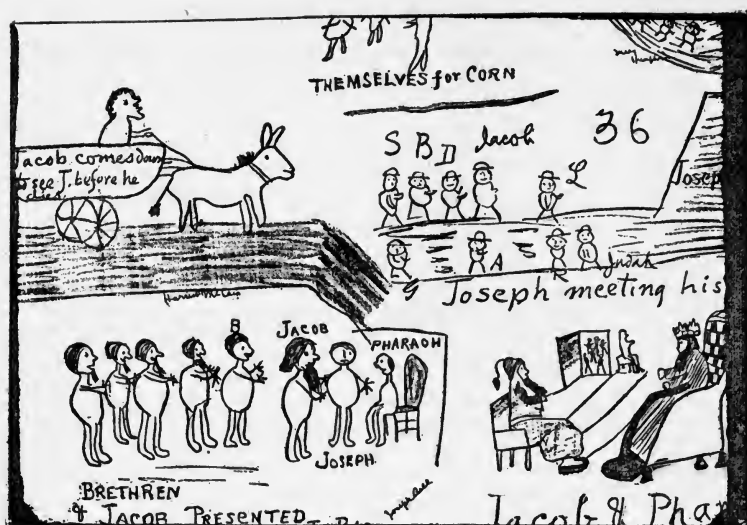 THEMSELVES for CORN
Jacob comes down
to see J. before he
dies.
S B D Jacob 36
L
Joseph
A
Judah
Joseph meeting his
B
JACOB
PHARAOH
JOSEPH
BRETHREN
& JACOB PRESENTED
Jacob & Pha